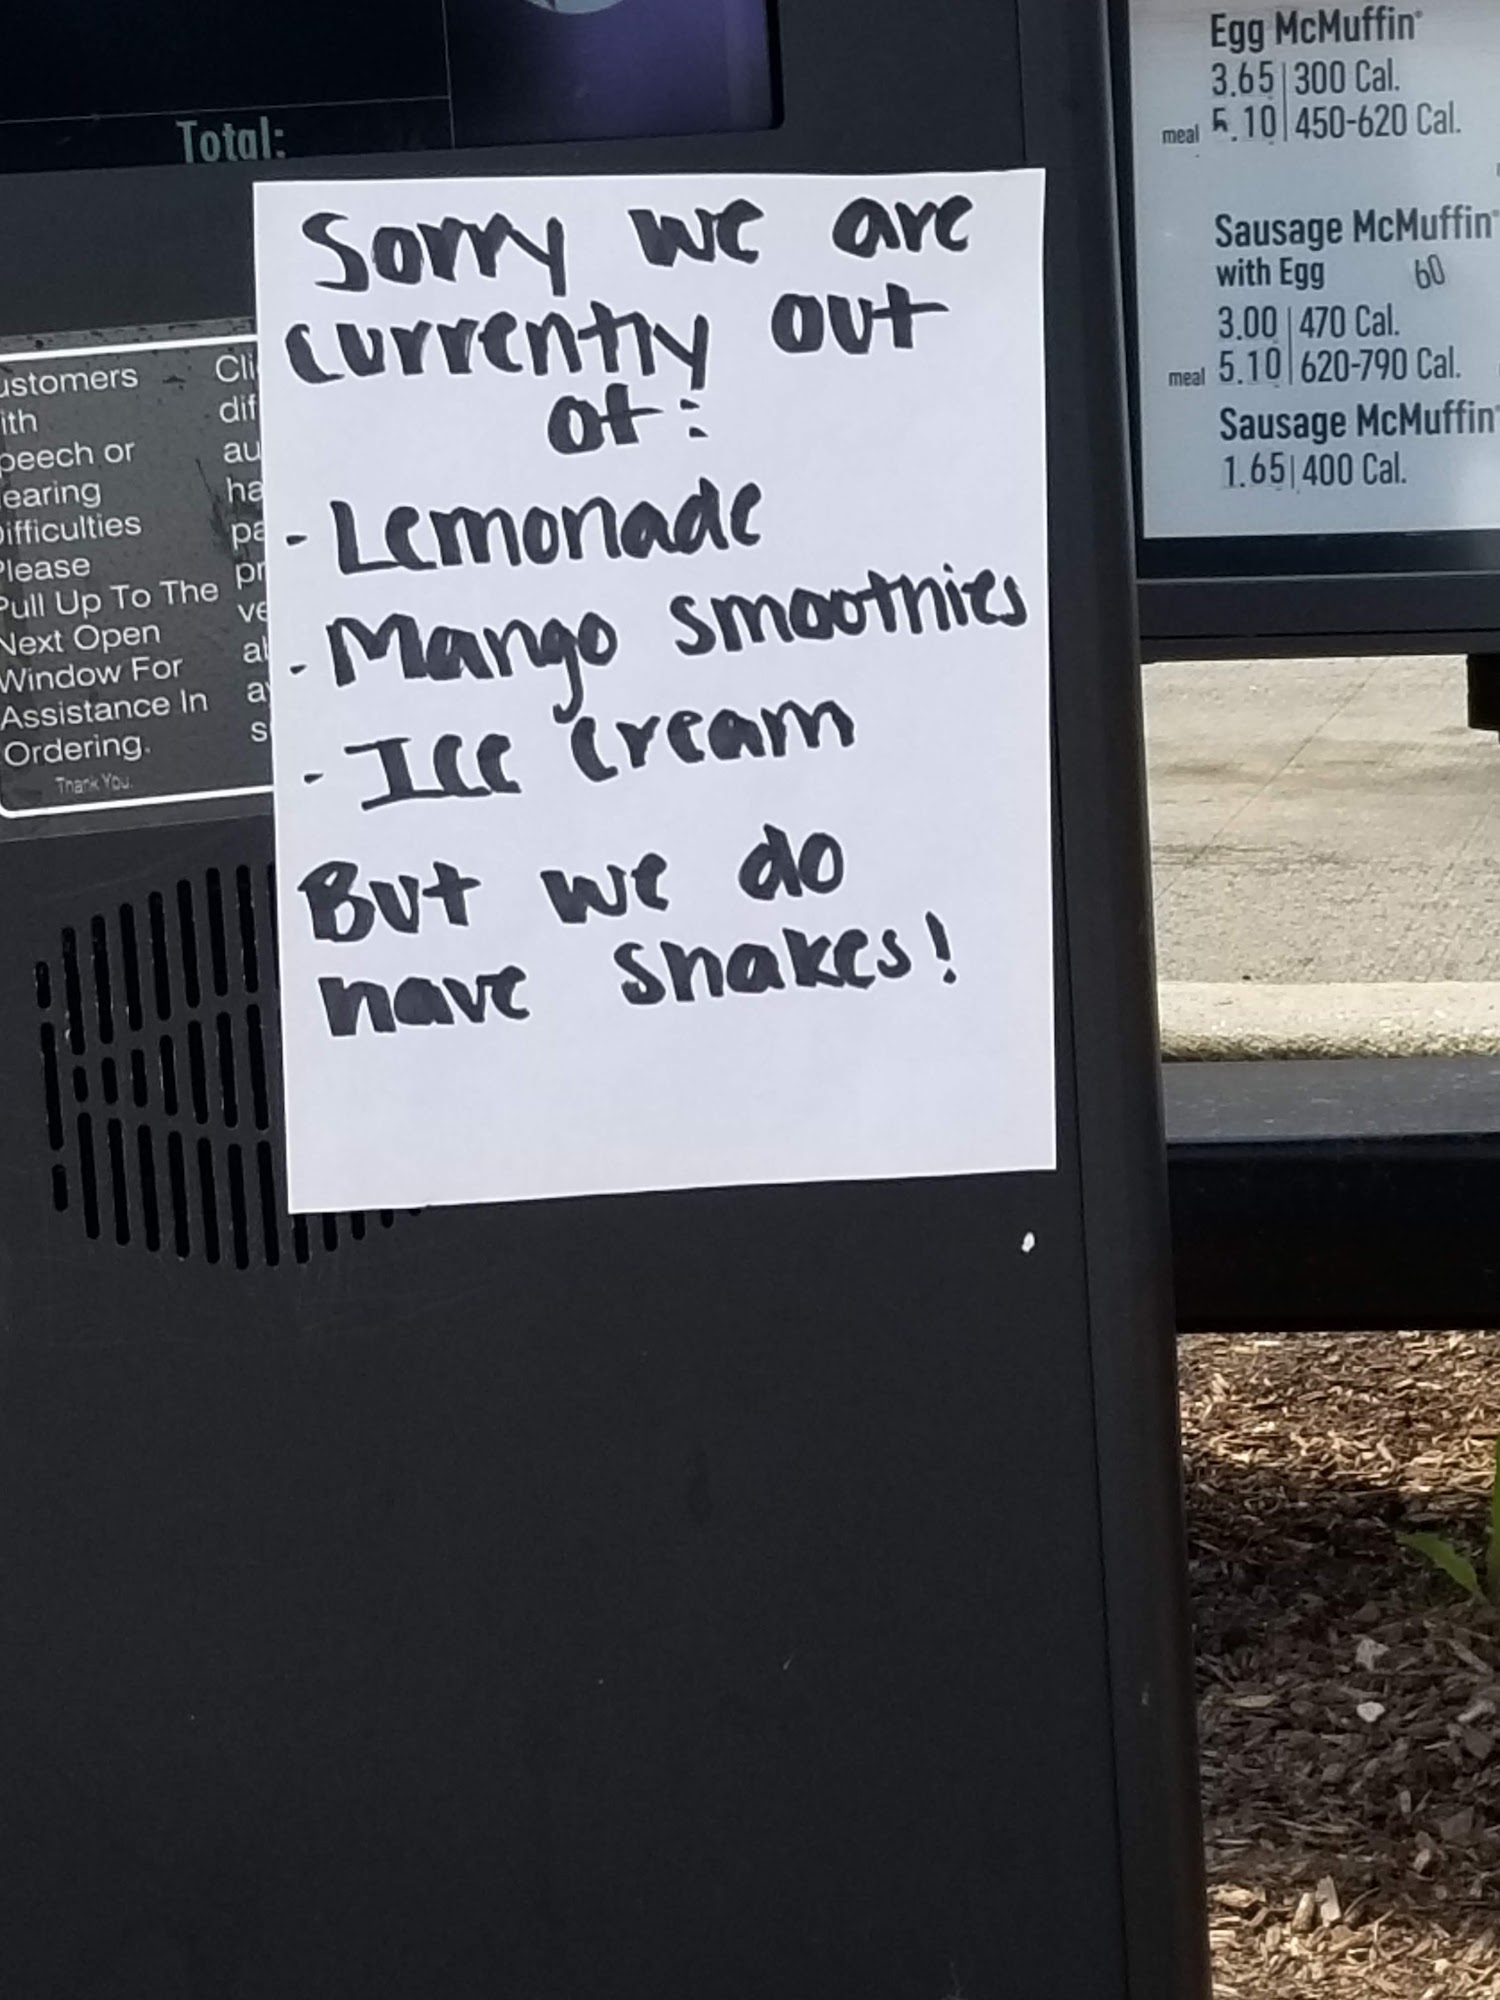 Total:
Sorry we are
currently out
of:
- Lemonade
- Mango smoothies
- Ice cream
But we do
have shakes!
ustomers
ith
peech or
earing
ifficulties
Please
Pull Up To The
Next Open
Window For
Assistance In
Ordering.
Thank You.
Cli
dif
au
ha
pa
pr
ve
al
a
s
Egg McMuffin®
3.65 | 300 Cal.
meal 5.10 | 450-620 Cal.
Sausage McMuffin®
with Egg 60
3.00 | 470 Cal.
meal 5.10 | 620-790 Cal.
Sausage McMuffin®
1.65 | 400 Cal.